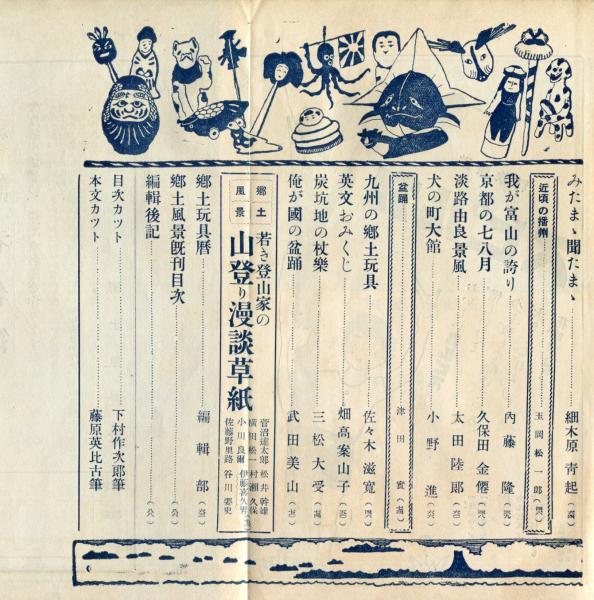 みたまゝ聞たまゝ……細木原青起
近頃の播州……玉岡松一郎
我が富山の誇り……内藤隆
京都の七八月……久保田金僊
淡路由良景風……太田陸郎
犬の町大館……小野進
盆踊……津田
九州の郷土玩具……佐々木滋寛
英文おみくじ……畑高案山子
炭坑地の杖樂……三松大愛
俺が國の盆踊……武田美山
郷土風景
若き登山家の
山登り漫談草紙
松井幹雄
村瀬久保
小川良爾
佐藤野里路
谷川
郷土玩具暦……編輯部
郷土風景既刊目次
編輯後記
目次カツト……下村作次郎筆
本文カツト……藤原英比古筆